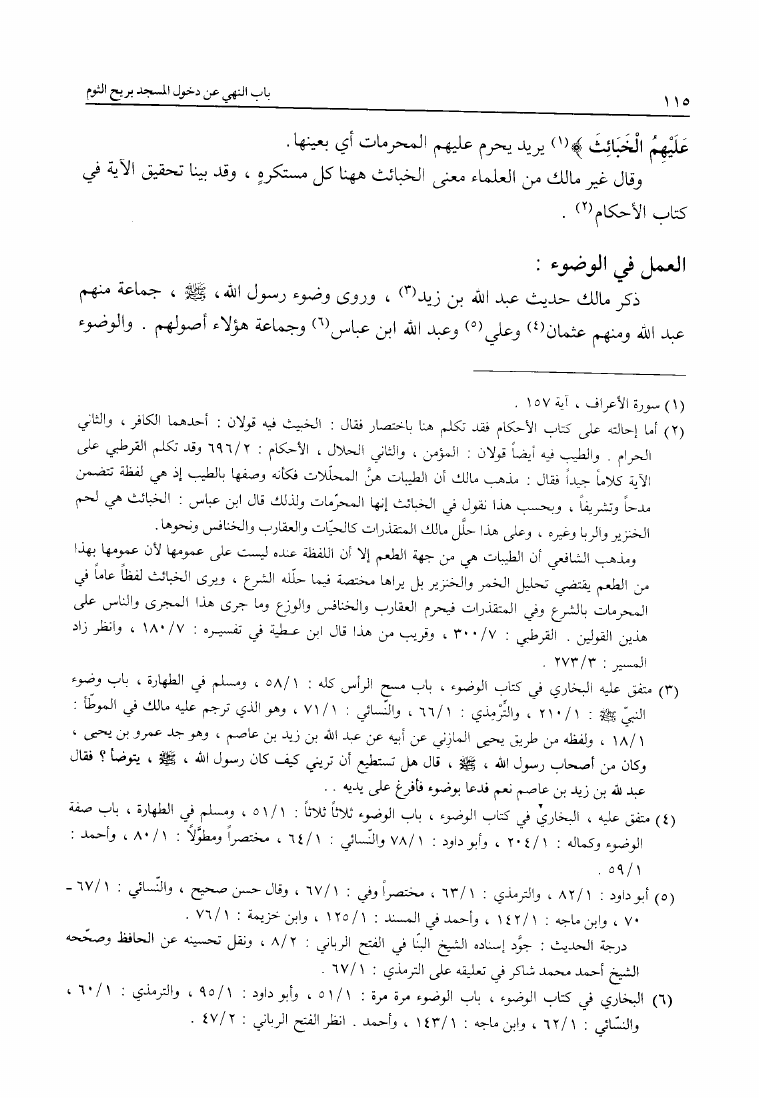 ١١٥ باب النهي عن دخول المسجد بريح الثوم
عَلَيْهِمُ الْخَبَائِثَ ﴾(١) يريد يحرم عليهم المحرمات أي بعينها.
وقال غير مالك من العلماء معنى الخبائث ههنا كل مستكرهٍ ، وقد بينا تحقيق الآية في
كتاب الأحكام(٢) .
العمل في الوضوء :
ذكر مالك حديث عبد الله بن زيد(٣) ، وروى وضوء رسول الله، ﷺ ، جماعة منهم
عبد الله ومنهم عثمان(٤) وعلي(٥) وعبد الله ابن عباس(٦) وجماعة هؤلاء أصولهم . والوضوء
(١) سورة الأعراف ، آية ١٥٧ .
(٢) أما إحالته على كتاب الأحكام فقد تكلم هنا باختصار فقال : الخبيث فيه قولان : أحدهما الكافر ، والثاني
الحرام . والطيب فيه أيضاً قولان : المؤمن ، والثاني الحلال ، الأحكام : ٦٩٦/٢ وقد تكلم القرطبي على
الآية كلاماً جيداً فقال : مذهب مالك أن الطيبات هنَّ المحلّلات فكأنه وصفها بالطيب إذ هي لفظة تتضمن
مدحاً وتشريفاً ، وبحسب هذا نقول في الخبائث إنها المحرّمات ولذلك قال ابن عباس : الخبائث هي لحم
الخنزير والربا وغيره ، وعلى هذا حلَّل مالك المتقذرات كالحيّات والعقارب والخنافس ونحوها.
ومذهب الشافعي أن الطيبات هي من جهة الطعم إلا أن اللفظة عنده ليست على عمومها لأن عمومها بهذا
من الطعم يقتضي تحليل الخمر والخنزير بل يراها مختصة فيما حلّله الشرع ، ويرى الخبائث لفظاً عاماً في
المحرمات بالشرع وفي المتقذرات فيحرم العقارب والخنافس والوزغ وما جرى هذا المجرى والناس على
هذين القولين . القرطبي : ٣٠٠/٧ ، وقريب من هذا قال ابن عطية في تفسيره : ١٨٠/٧ ، وانظر زاد
المسير : ٢٧٣/٣ .
(٣) متفق عليه البخاري في كتاب الوضوء ، باب مسح الرأس كله : ٥٨/١ ، ومسلم في الطهارة ، باب وضوء
النبيّ ﷺ : ٢١٠/١ ، والتِّرمِذي : ٦٦/١ ، والنّسائي : ٧١/١ ، وهو الذي ترجم عليه مالك في الموطّأ :
١٨/١ ، ولفظه من طريق يحيى المازني عن أبيه عن عبد الله بن زيد بن عاصم ، وهو جد عمرو بن يحيى ،
وكان من أصحاب رسول الله ، ﷺ ، قال هل تستطيع أن تريني كيف كان رسول الله ، ﷺ ، يتوضأ ؟ فقال
عبد لله بن زيد بن عاصم نعم فدعا بوضوء فأفرغ على يديه . .
(٤) متفق عليه ، البخاري في كتاب الوضوء ، باب الوضوء ثلاثاً ثلاثاً : ٥١/١ ، ومسلم في الطهارة ، باب صفة
الوضوء وكماله : ٢٠٤/١ ، وأبو داود : ٧٨/١ والنّسائي : ٦٤/١ ، مختصراً ومطوَّلاً : ٨٠/١ ، وأحمد :
٥٩/١ .
(٥) أبو داود : ٨٢/١ ، والترمذي : ٦٣/١ ، مختصراً وفي : ٦٧/١ ، وقال حسن صحيح ، والنّسائي : ٦٧/١ ـ
٧٠ ، وابن ماجه : ١٤٢/١ ، وأحمد في المسند : ١٢٥/١ ، وابن خزيمة : ٧٦/١ .
درجة الحديث : جوَّد إسناده الشيخ البنّا في الفتح الرباني : ٨/٢ ، ونقل تحسينه عن الحافظ وصحّحه
الشيخ أحمد محمد شاكر في تعليقه على الترمذي : ٦٧/١ .
(٦) البخاري في كتاب الوضوء ، باب الوضوء مرة مرة : ٥١/١ ، وأبو داود : ٩٥/١ ، والترمذي : ٦٠/١ ،
والنسّائي : ٦٢/١ ، وابن ماجه : ١٤٣/١ ، وأحمد . انظر الفتح الرباني : ٤٧/٢ .